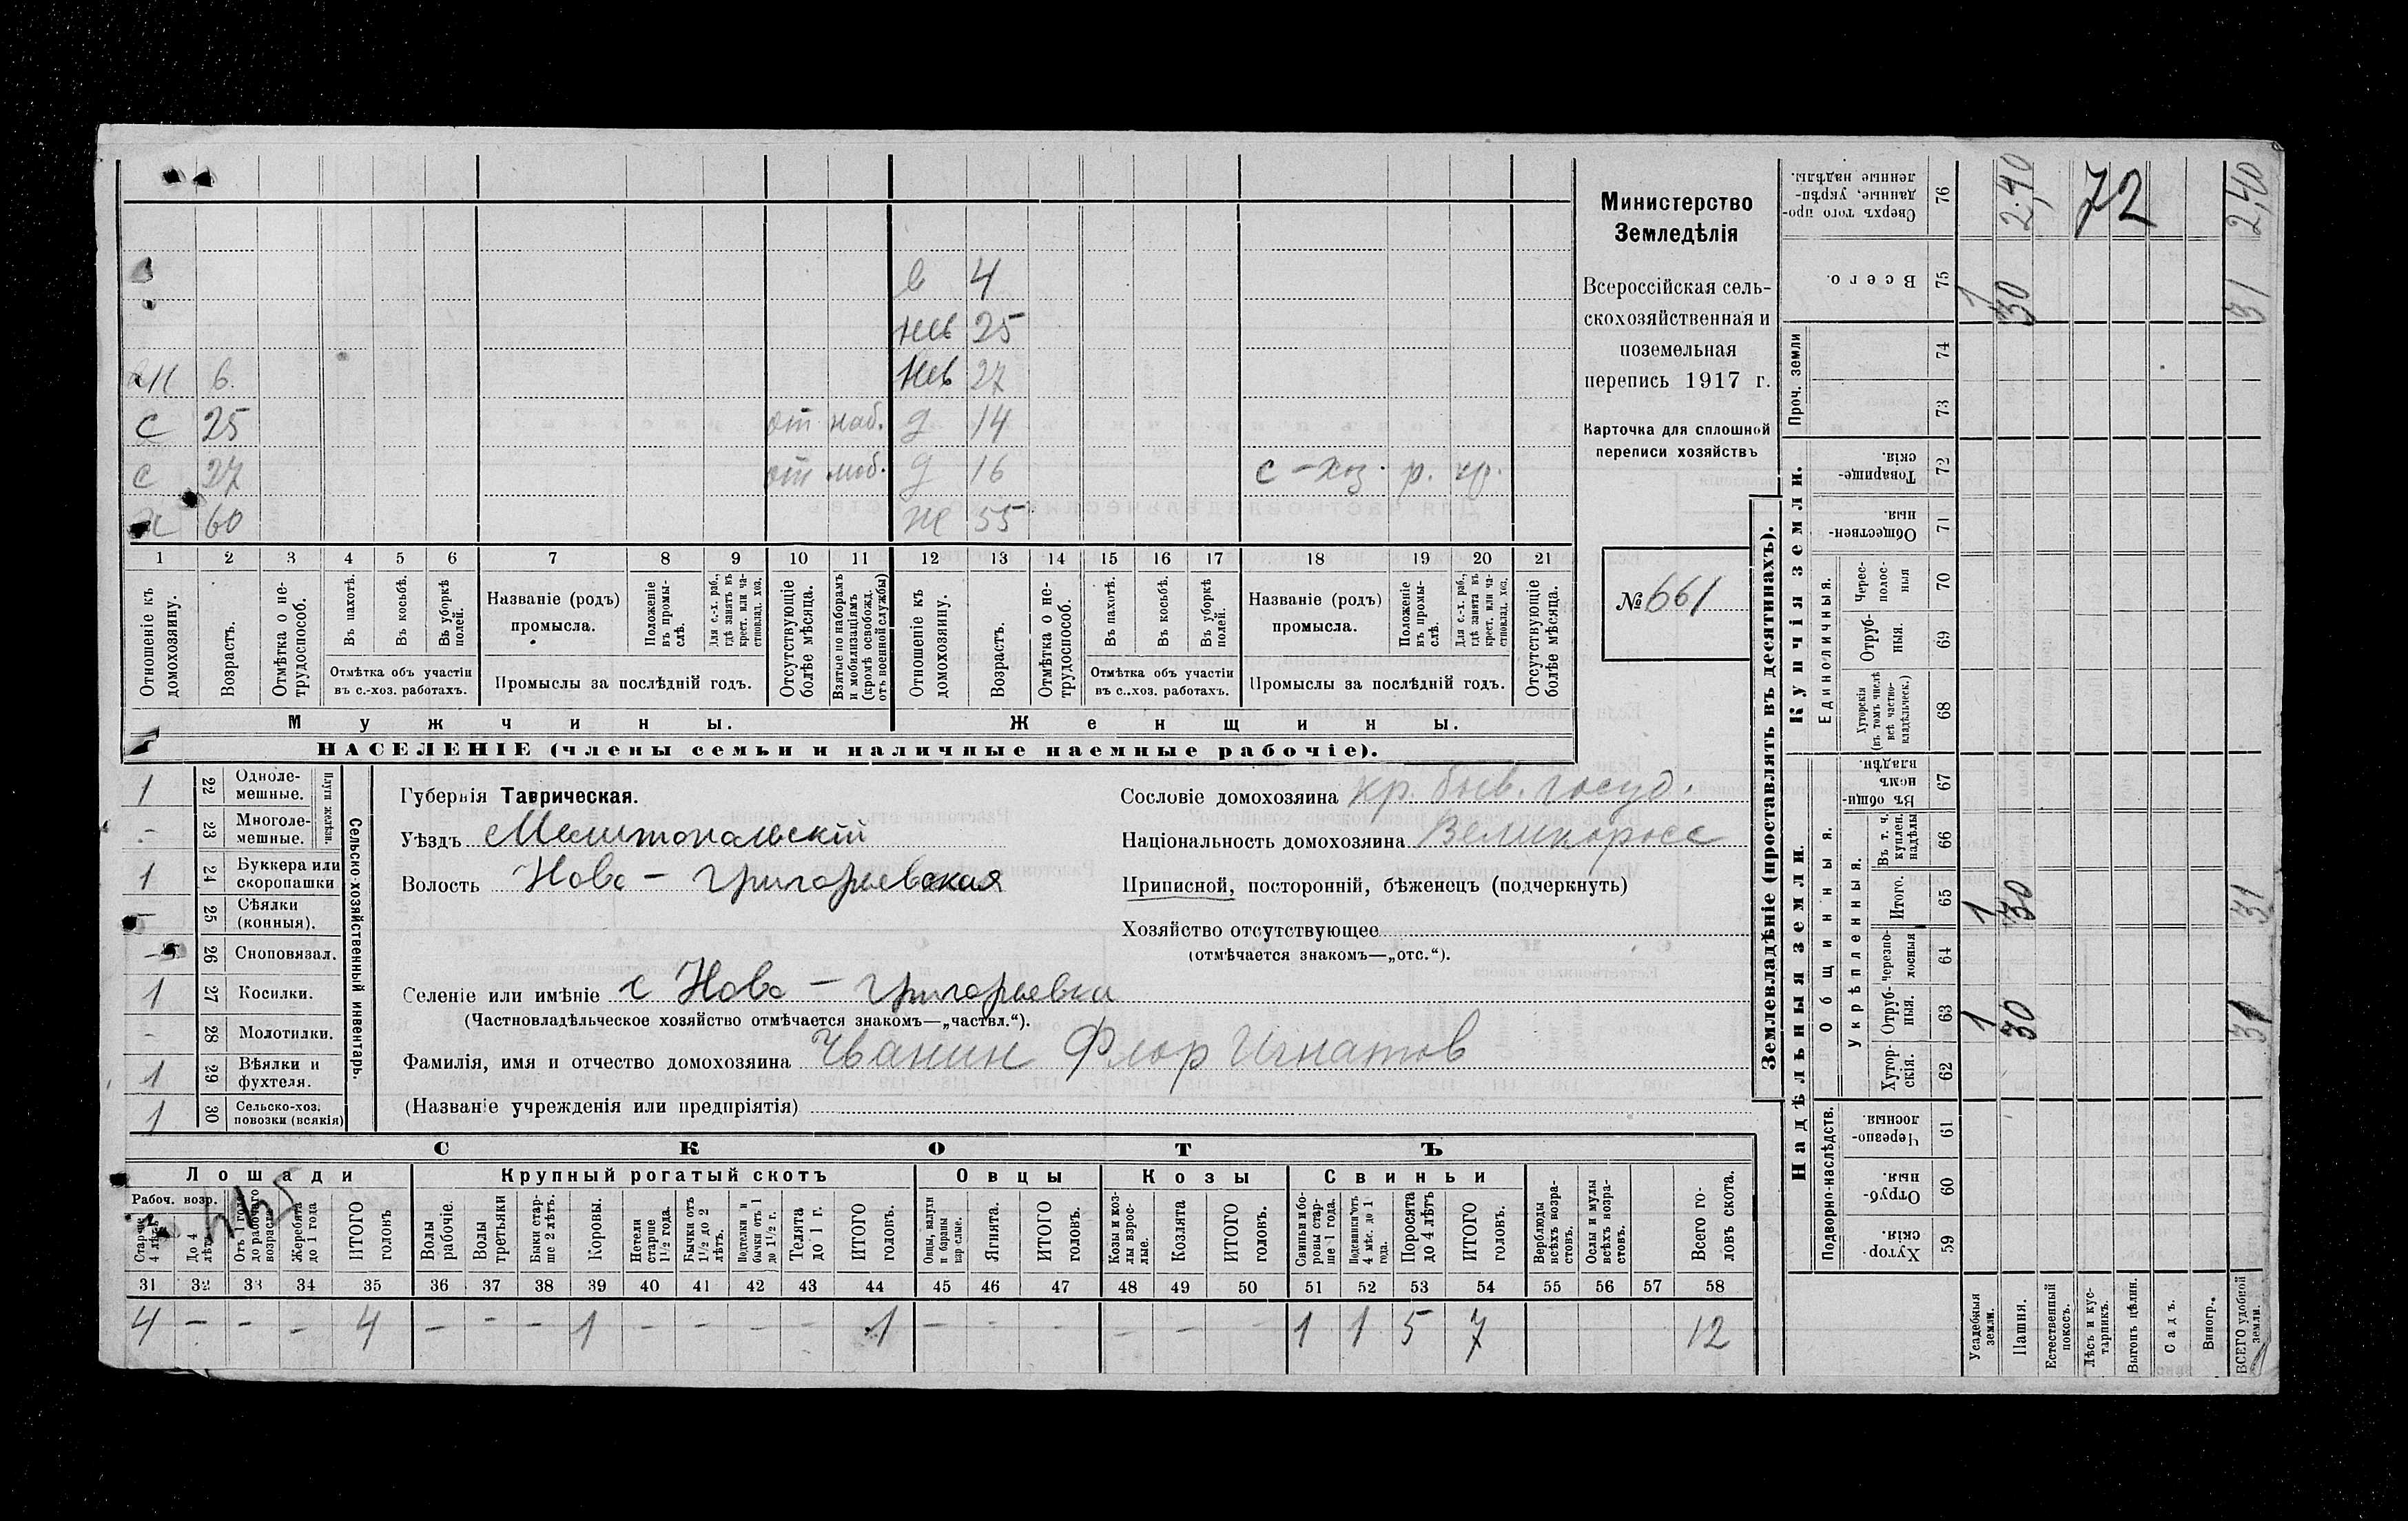 Министерство
Земледѣлія
Всероссійская сель-
скохозяйственная и
поземельная
перепись 1917 г.
Карточка для сплошной
переписи хозяйствъ
№ 661
в 4
нев 25
вн 6 нев 27
с 25 от наб. д 14
с 27 от моб. д 16 с-хоз. р. кр.
х 60 ж 55
1 2 3 4 5 6 7 8 9 10 11 12 13 14 15 16 17 18 19 20 21
Отношеніе къ домохозяину.
Возрастъ.
Отмѣтка о не-трудоспособ.
Въ пахотѣ.
Въ косьбѣ.
Въ уборкѣ полей.
Отмѣтка объ участіи
въ с.-хоз. работахъ.
Названіе (родъ)
промысла.
Положеніе въ промы-слѣ.
Для с.-х. раб., гдѣ занятъ въ крест. или ча-стновлад. хоз.
Промыслы за послѣдній годъ.
Отсутствующіе болѣе мѣсяца.
Взятые по наборамъ и мобилизаціямъ (кромѣ освобожд. отъ военной службы)
Отношеніе къ домохозяину.
Возрастъ.
Отмѣтка о не-трудоспособ.
Въ пахотѣ.
Въ косьбѣ.
Въ уборкѣ полей.
Отмѣтка объ участіи
въ с..хоз. работахъ.
Названіе (родъ)
промысла.
Положеніе въ промы-слѣ.
Для с.-х. раб., гдѣ занята въ крест. или ча-стновлад. хоз.
Промыслы за послѣдній годъ.
Отсутствующіе болѣе мѣсяца.
Мужчины. Женщины.
НАСЕЛЕНІЕ (члены семьи и наличные наемные рабочіе).
Сельско-хозяйственный инвентарь.
Плуги желѣзн.
1 22 Одноле-мешные.
- 23 Многоле-мешные.
1 24 Буккера или скоропашки
- 25 Сѣялки (конныя).
- 26 Сноповязал.
1 27 Косилки.
- 28 Молотилки.
1 29 Вѣялки и фухтеля.
1 30 Сельско-хоз. повозки (всякія)
Губернія Таврическая.
Уѣздъ Мелитопольскій
Волость Ново-Григорьевская
Сословіе домохозяина кр. быв. госуд.
Національность домохозяина Великоросс
Приписной, посторонній, бѣженецъ (подчеркнуть)
Хозяйство отсутствующее
(отмѣчается знакомъ—„отс.“).
Селеніе или имѣніе с Ново-Григорьевка
(Частновладѣльческое хозяйство отмѣчается знакомъ—„частвл.“).
Фамилія, имя и отчество домохозяина Чванин Флор Игнатов
(Названіе учрежденія или предпріятія)
СКОТЪ
Лошади Крупный рогатый скотъ Овцы Козы Свиньи
Рабоч. возр.
445
Старше 4 лѣтъ
До 4 лѣтъ
Отъ 1 года до рабочаго возраста
Жеребята до 1 года
ИТОГО головъ
Волы рабочіе.
Волы третьяки
Быки стар-ше 2 лѣтъ.
Коровы.
Нетели старше 1½ года.
Бычки отъ 1½ до 2 лѣтъ.
Подтелки и бычки отъ 1 до 1½ г.
Телята до 1 г.
ИТОГО головъ.
Овцы, валухи и бараны взрослые.
Ягнята.
ИТОГО головъ.
Козы и коз-лы взрос-лые.
Козлята
ИТОГО головъ.
Свиньи и бо-ровы стар-ше 1 года.
Подсвинки отъ 4 мѣс. до 1 года.
Поросята до 4 лѣтъ
ИТОГО головъ.
Верблюды всѣхъ возра-стовъ.
Ослы и мулы всѣхъ возра-стовъ.
Всего го-ловъ скота.
31 32 33 34 35 36 37 38 39 40 41 42 43 44 45 46 47 48 49 50 51 52 53 54 55 56 57 58
4 - - - 4 - - - 1 - - - - 1 - - - - - - 1 1 5 7 12
Землевладѣніе (проставлять въ десятинахъ).
Купчія земли.
Надѣльныя земли.
Сверхъ того про-данные, укрѣп-ленные надѣлы. 76 2,40 72 2,40
Всего. 75 1 30 31
Проч. земли
74
73
Товарище-скія. 72
Обществен-ныя. 71
Единоличныя.
Черес-полос-ныя 70
Отруб-ныя. 69
Хуторскія (въ томъ числѣ всѣ частно-владѣльческ.) 68
Общинныя.
Въ общи-номъ владѣн. 67
Укрѣпленныя.
Въ т. ч. куплен. надѣлы 66
Итого. 65 1 30 31
Черезпо-лосныя 64
Отруб-ныя. 63 1 30 31
Хутор-скія. 62
Подворно-наслѣдств.
Черезпо-лосныя. 61
Отруб-ныя. 60
Хутор-скія. 59
Усадебныя земли.
Пашня.
Естественный покосъ.
Лѣсъ и кус-тарникъ.
Выгонъ цѣлин.
Садъ.
Виногр.
ВСЕГО удобной земли.